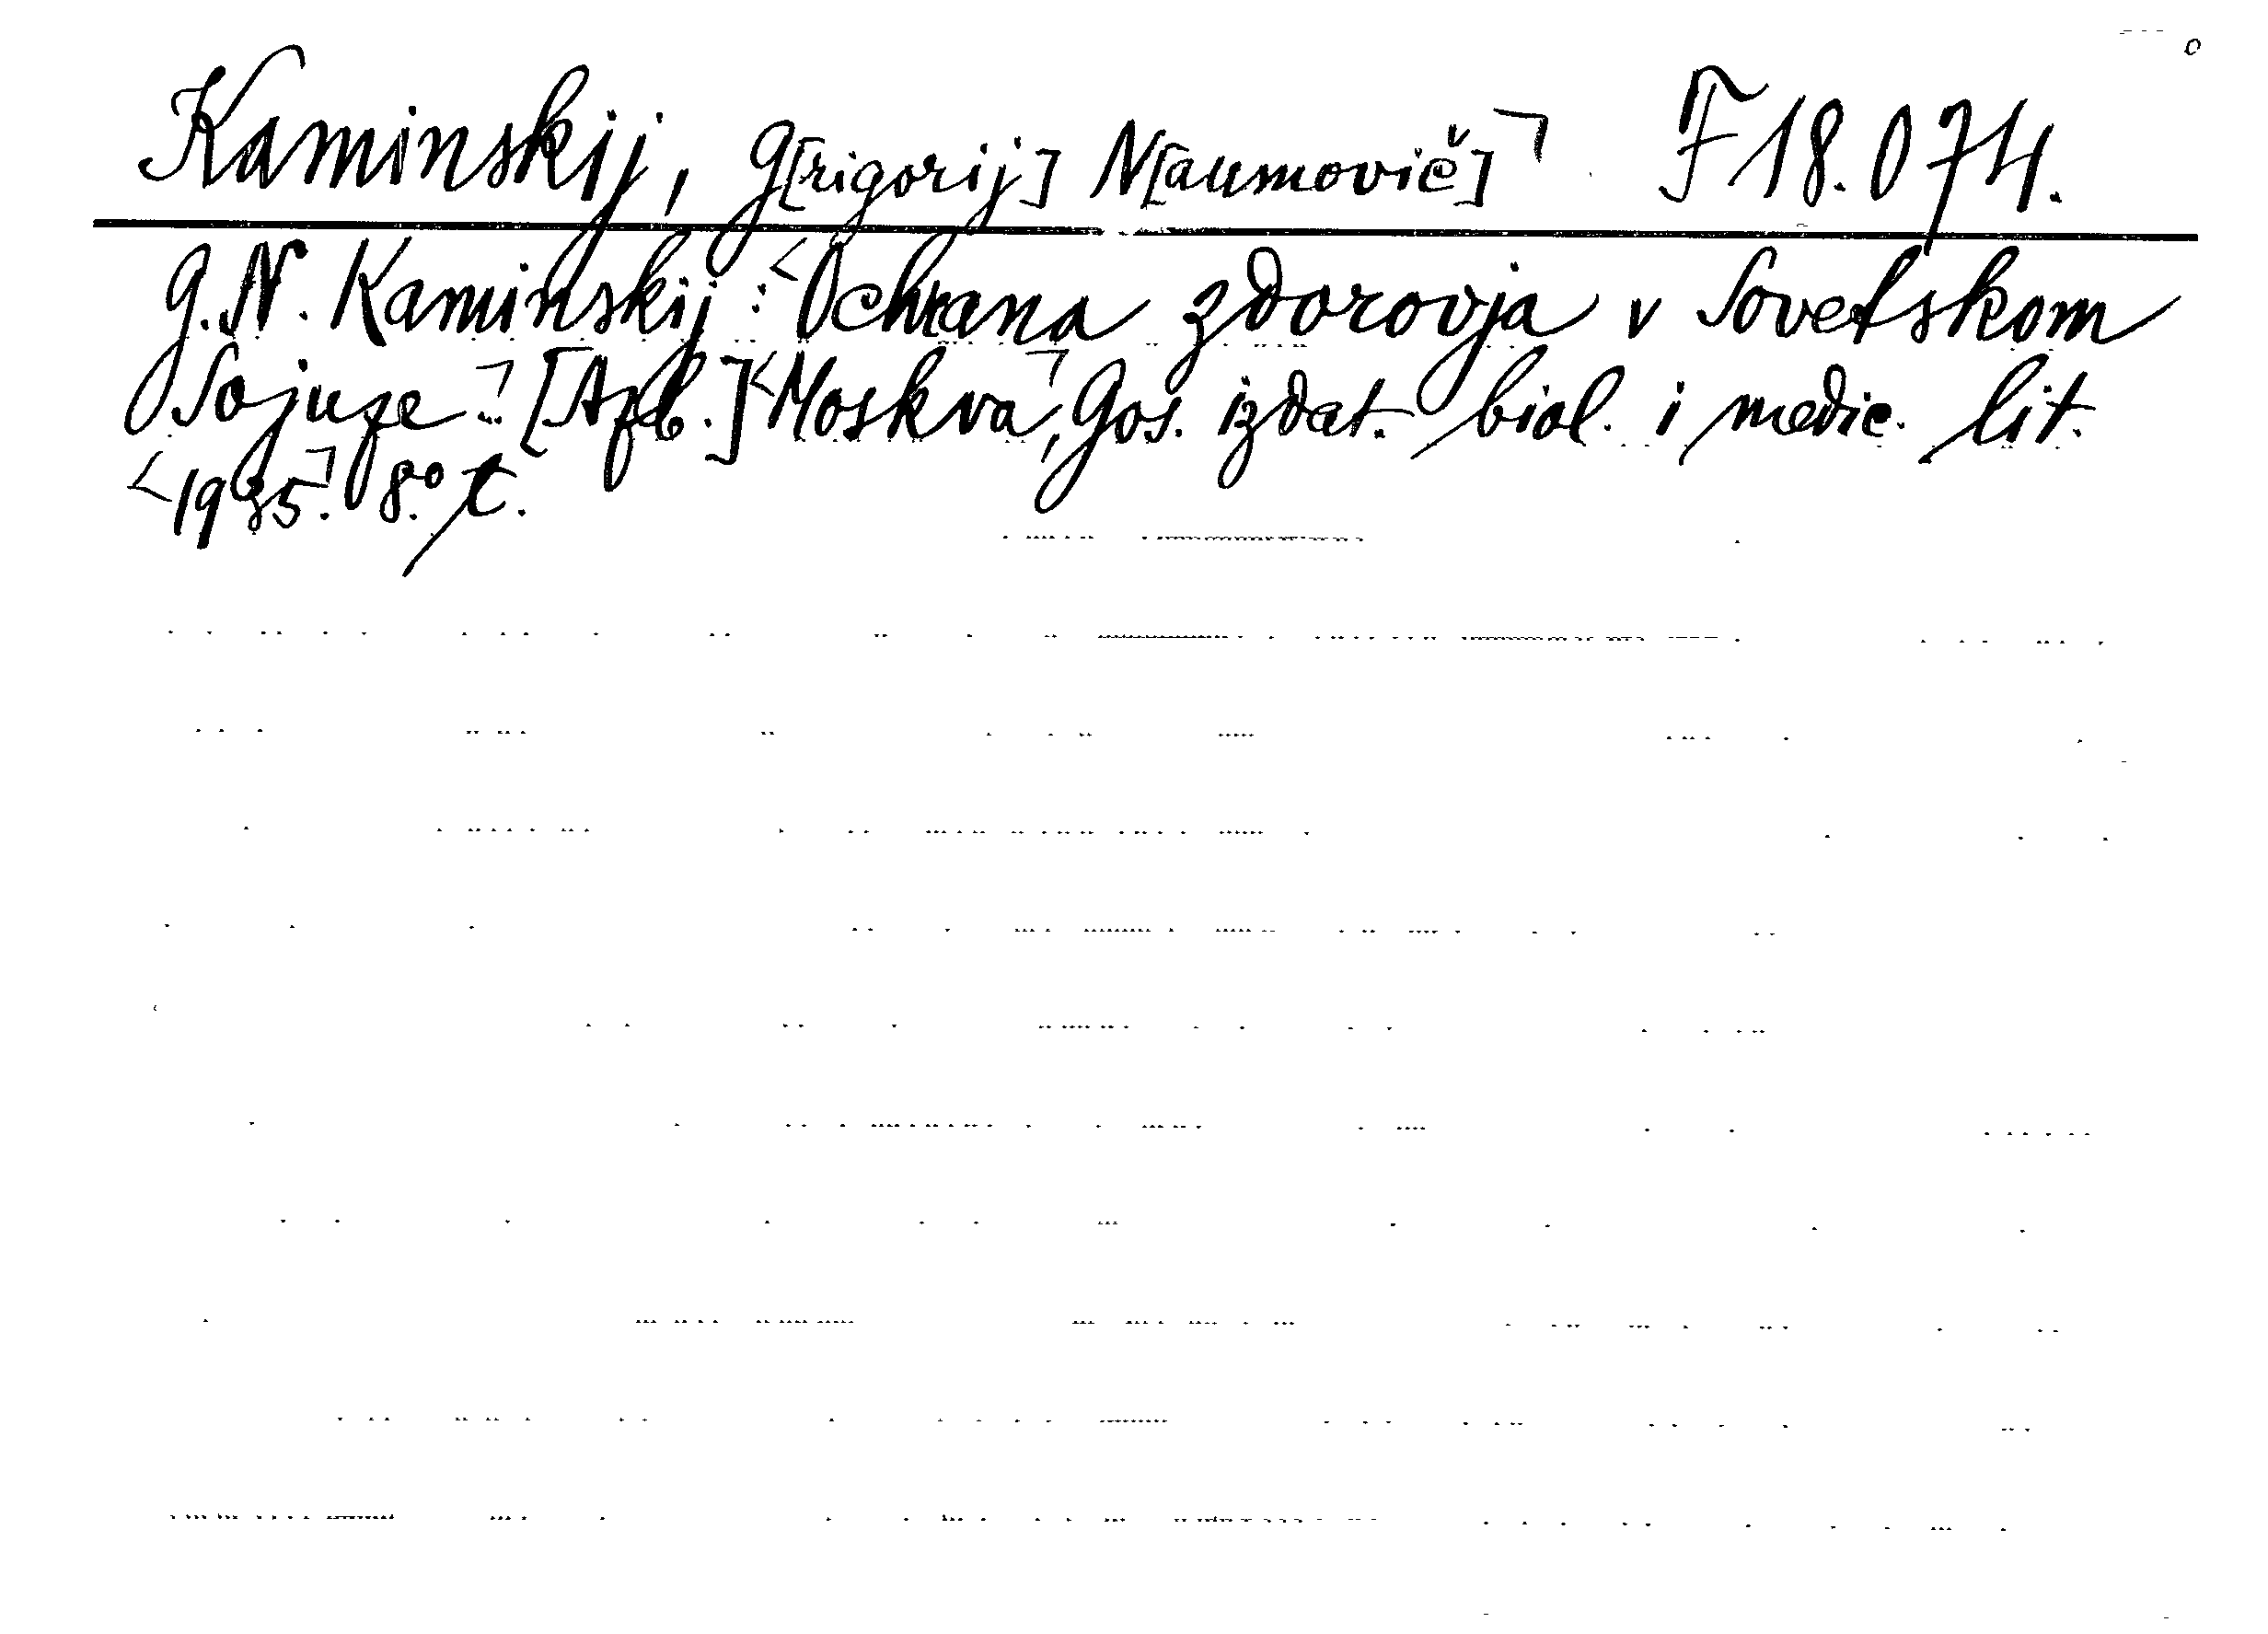 Kaminskij, G[rigorij] N[aumovič]⌝ F 18.074.
G. N. Kaminskij: <Ochrana zdorovja v Sovetskom
Sojuze⌝... [Azb.] <Moskva⌝, Gos. izdat. biol. i medic. lit.
<1935⌝. 8.° t.